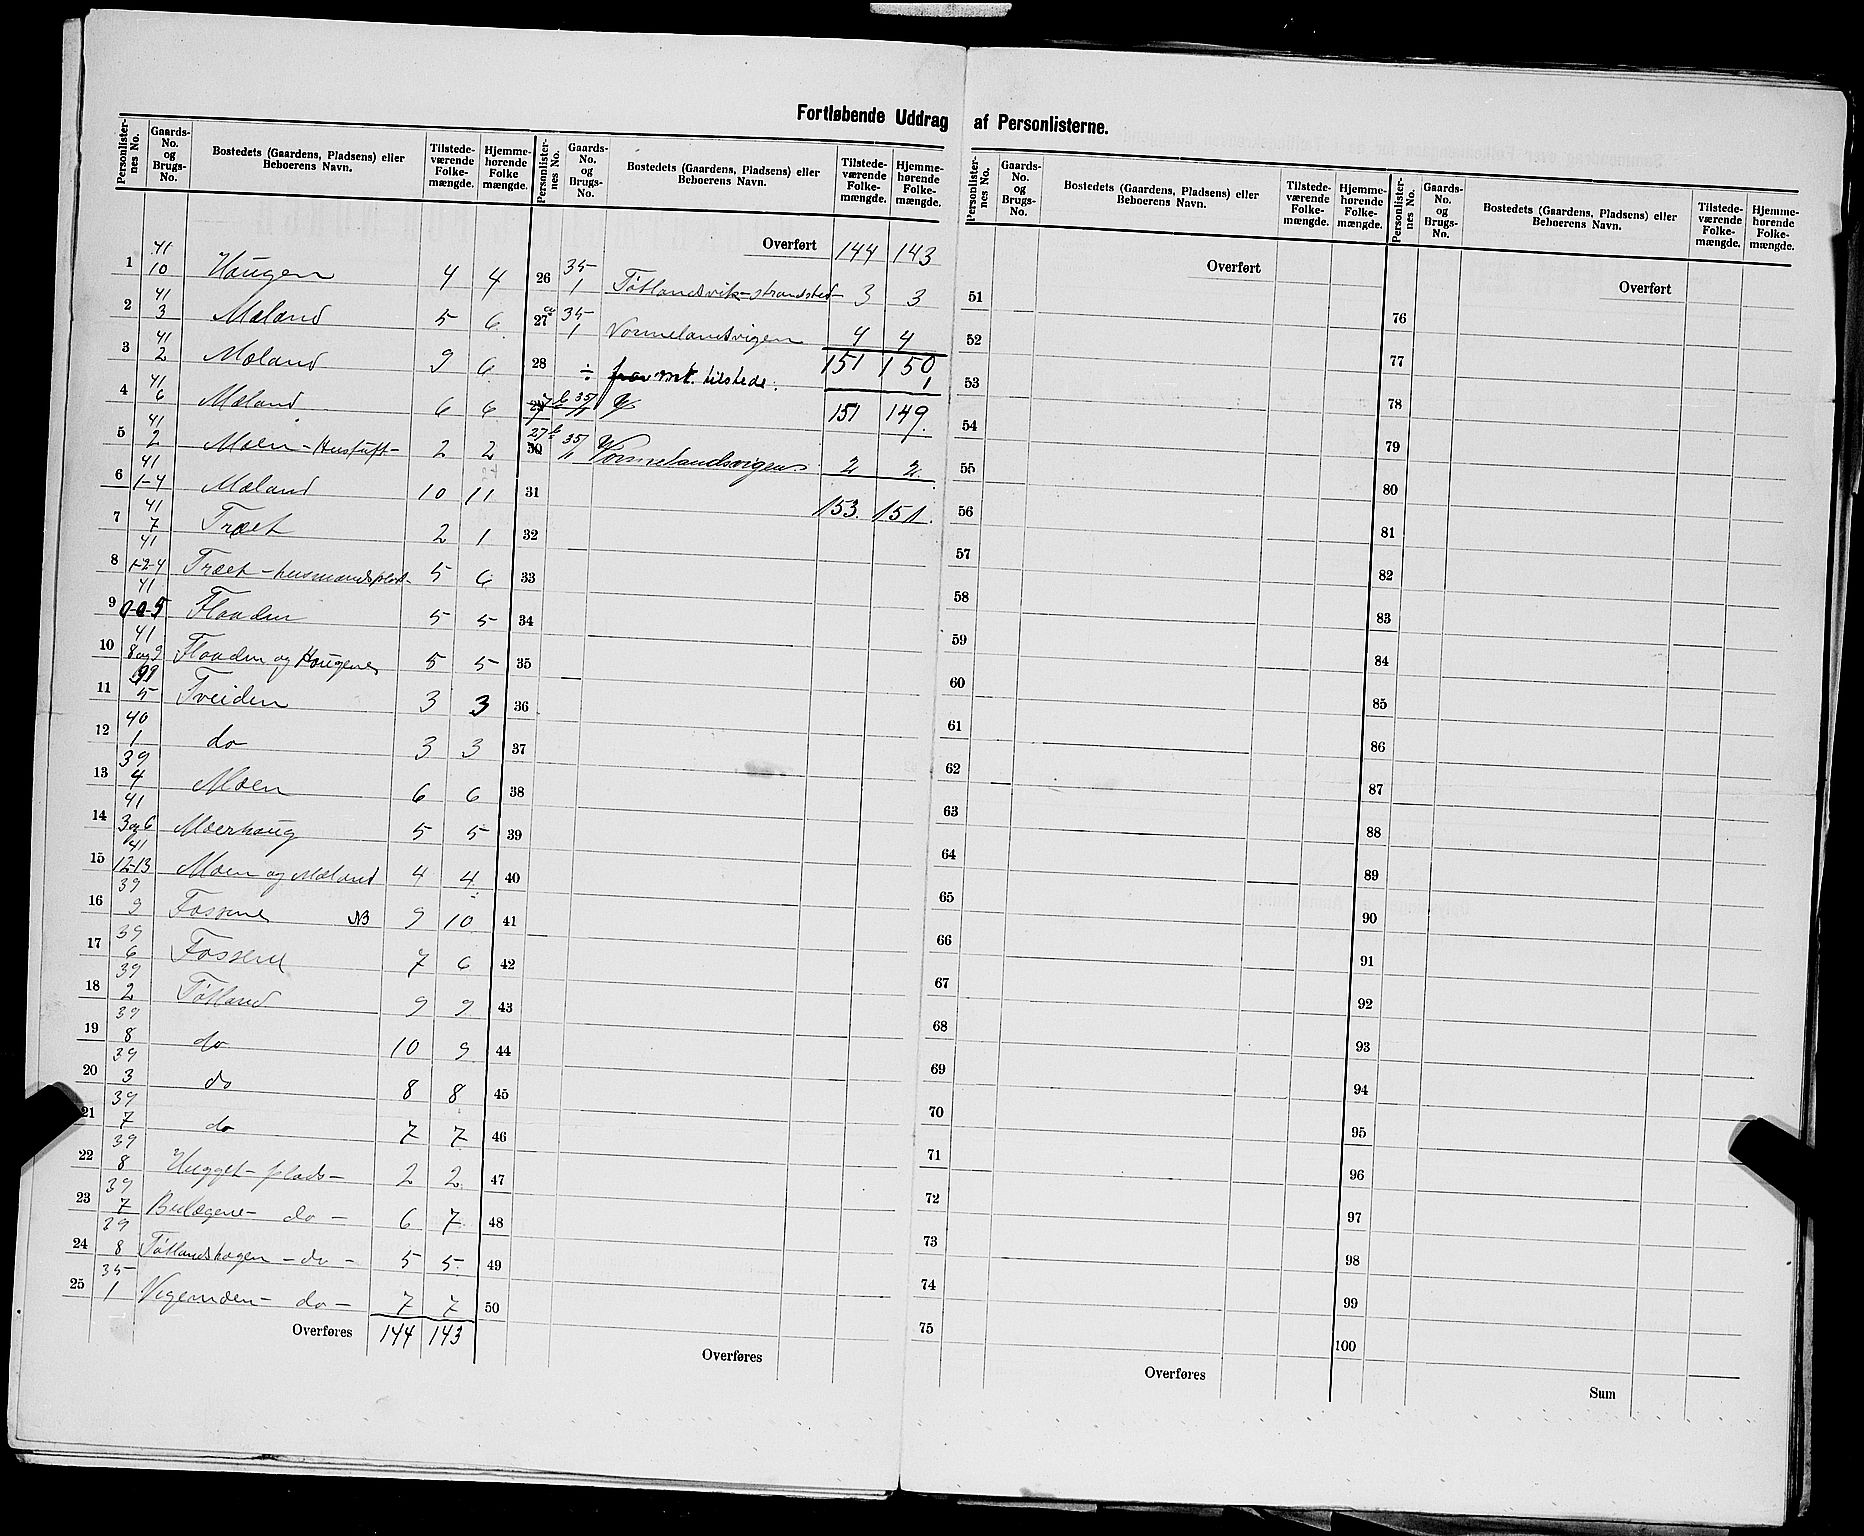 Fortløbende Uddrag af Personlisterne.
Personlister-nes No. | Gaards-No. og Brugs-No. | Bostedets (Gaardens, Pladsens) eller Beboerens Navn. | Tilstede-værende Folke-mængde. | Hjemme-hørende Folke mængde.
1 | 41 10 | Haugen | 4 | 4
2 | 41 3 | Mæland | 5 | 6
3 | 41 2 | Mæland | 9 | 6
4 | 41 6 | Mæland | 6 | 6
5 | 41 2 | Moen - Hustuft - | 2 | 2
6 | 41 1-4 | Mæland | 10 | 11
7 | 41 7 | Træet | 2 | 1
8 | 41 1-2-4 | Træet - husmandsplads | 5 | 6
9 | 41 | Flaaden | 5 | 5
10 | 41 8 og 9 | Flaaden og Haugene | 5 | 5
11 | 5 | Tveiden | 3 | 3
12 | 40 1 | do | 3 | 3
13 | 39 4 | Moen | 6 | 6
14 | 41 3 og 6 | Moerhaug | 5 | 5
15 | 41 12-13 | Moen og Mæland | 4 | 4
16 | 39 9 | Fossene NB | 9 | 10
17 | 39 6 | Fossene | 7 | 6
18 | 39 2 | Tøtland | 9 | 9
19 | 39 8 | do | 10 | 9
20 | 39 3 | do | 8 | 8
21 | 39 7 | do | 7 | 7
22 | 39 8 | Hugget - plads - | 2 | 2
23 | 39 7 | do - | 6 | 7
24 | 39 8 | Tøtlandshagen - do - | 5 | 5
25 | 35 1 | Vigemoen - do - | 7 | 7
Overføres | 144 | 143
Personlister-nes No. | Gaards-No. og Brugs-No. | Bostedets (Gaardens, Pladsens) eller Beboerens Navn. | Tilstede-værende Folke-mængde. | Hjemme-hørende Folke-mængde.
Overført | 144 | 143
26 | 35 1 | Tøtlandsvik - strandsted - | 3 | 3
27 a | 35 1 | Vormelandsvigen | 4 | 4
28 | ÷ mt. tilstede. | 151 | 150
1
29 | 151 | 149.
30 | 27 b 35/1 | Vormelandsvigen | 2 | 2
31 | 153. | 151.
32
33
34
35
36
37
38
39
40
41
42
43
44
45
46
47
48
49
50
Overføres
Personlister-nes No. | Gaards-No. og Brugs-No. | Bostedets (Gaardens, Pladsens) eller Beboerens Navn. | Tilstede-værende Folke-mængde. | Hjemme-hørende Folke-mængde.
Overført
51
52
53
54
55
56
57
58
59
60
61
62
63
64
65
66
67
68
69
70
71
72
73
74
75
Overføres
Personlister-nes No. | Gaards-No. og Brugs-No. | Bostedets (Gaardens, Pladsens) eller Beboerens Navn. | Tilstede-værende Folke-mængde. | Hjemme-hørende Folke-mængde.
Overført
76
77
78
79
80
81
82
83
84
85
86
87
88
89
90
91
92
93
94
95
96
97
98
99
100
Sum